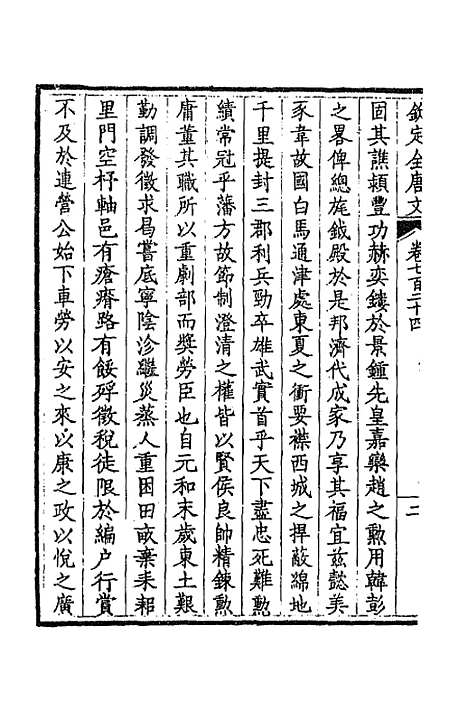 欽定全唐文 卷七百二十四 二
固其譙頛豐功赫奕鏤於景鍾先皇嘉欒趙之勲用韓彭
之畧俾總旄鉞殿於是邦濟代成家乃享其福宜兹懿美
豕韋故國白馬通津處東夏之衝要襟西城之捍蔽綿地
千里提封三郡利兵勁卒雄武實首乎天下盡忠死難勲
績常冠乎藩方故節制澄清之權皆以賢侯良帥精鍊勲
庸董其職所以重劇部而奬勞臣也自元和末歲東土艱
勤調發徵求曷嘗底寧陰沴繼災蒸人重困田畝棄耒耜
里門空杼軸邑有瘡瘠路有餒殍徵稅徒限於編户行賞
不及於連營公始下車勞以安之來以康之政以悅之廣